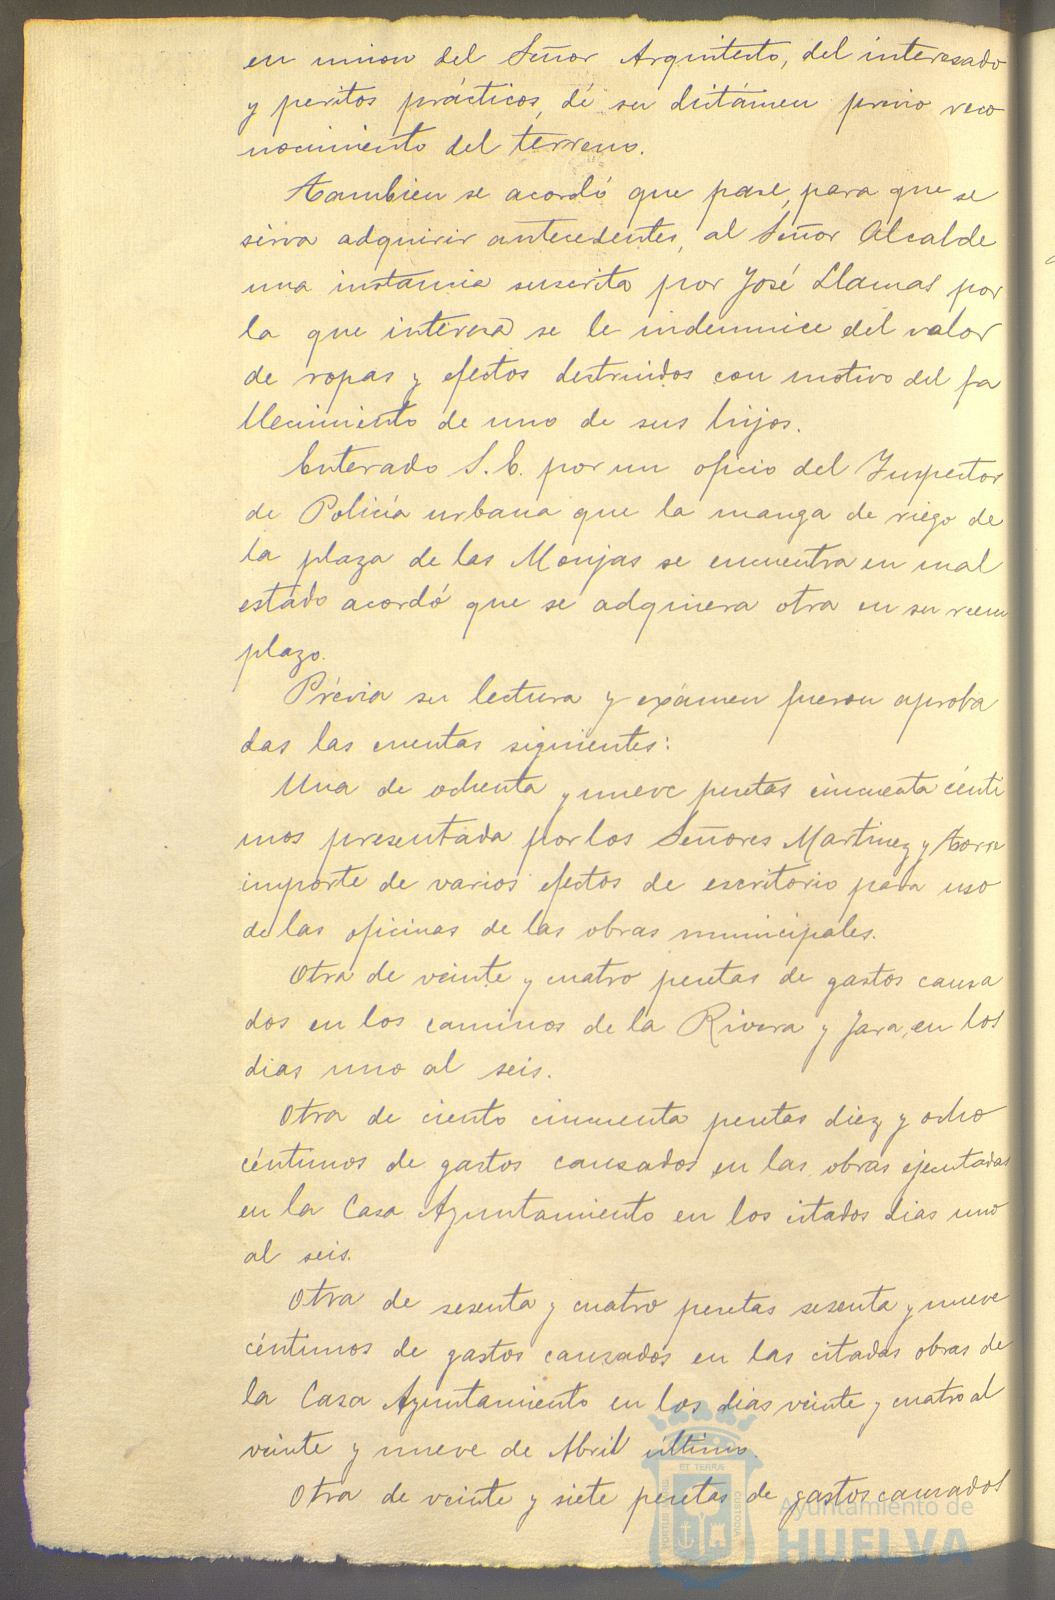 en union del Señor Arquitecto, del interesado
y peritos prácticos, dé su dictámen prévio reco
nocimiento del terreno.
Tambien se acordó que pase, para que se
sirva adquirir antecedentes, al Señor Alcalde
una instancia suscrita por José Llamas por
la que interesa se le indemnice del valor
de ropas y efectos destruidos con motivo del fa
llecimiento de uno de sus hijos.
Enterado S. E. por un oficio del Inspector
de Policía urbana que la manga de riego de
la plaza de las Monjas se encuentra en mal
estado acordó que se adquiera otra en su reem
plazo.
Prévia su lectura y exámen fueron aproba
das las cuentas siguientes:
Una de ochenta y nueve pesetas cincuenta cénti
mos presentada por los Señores Martinez y
importe de varios efectos de escritorio para uso
de las oficinas de las obras municipales.
Otra de veinte y cuatro pesetas de gastos causa
dos en los caminos de la Rivera y Jara, en los
dias uno al seis.
Otra de ciento cincuenta pesetas diez y ocho
céntimos de gastos causados en las obras ejecutadas
en la Casa Ayuntamiento en los citados dias uno
al seis.
Otra de sesenta y cuatro pesetas sesenta y nueve
céntimos de gastos causados en las citadas obras de
la Casa Ayuntamiento en los dias veinte y cuatro al
veinte y nueve de Abril último.
Otra de veinte y siete pesetas de gastos causados
Ayuntamiento de
HUELVA